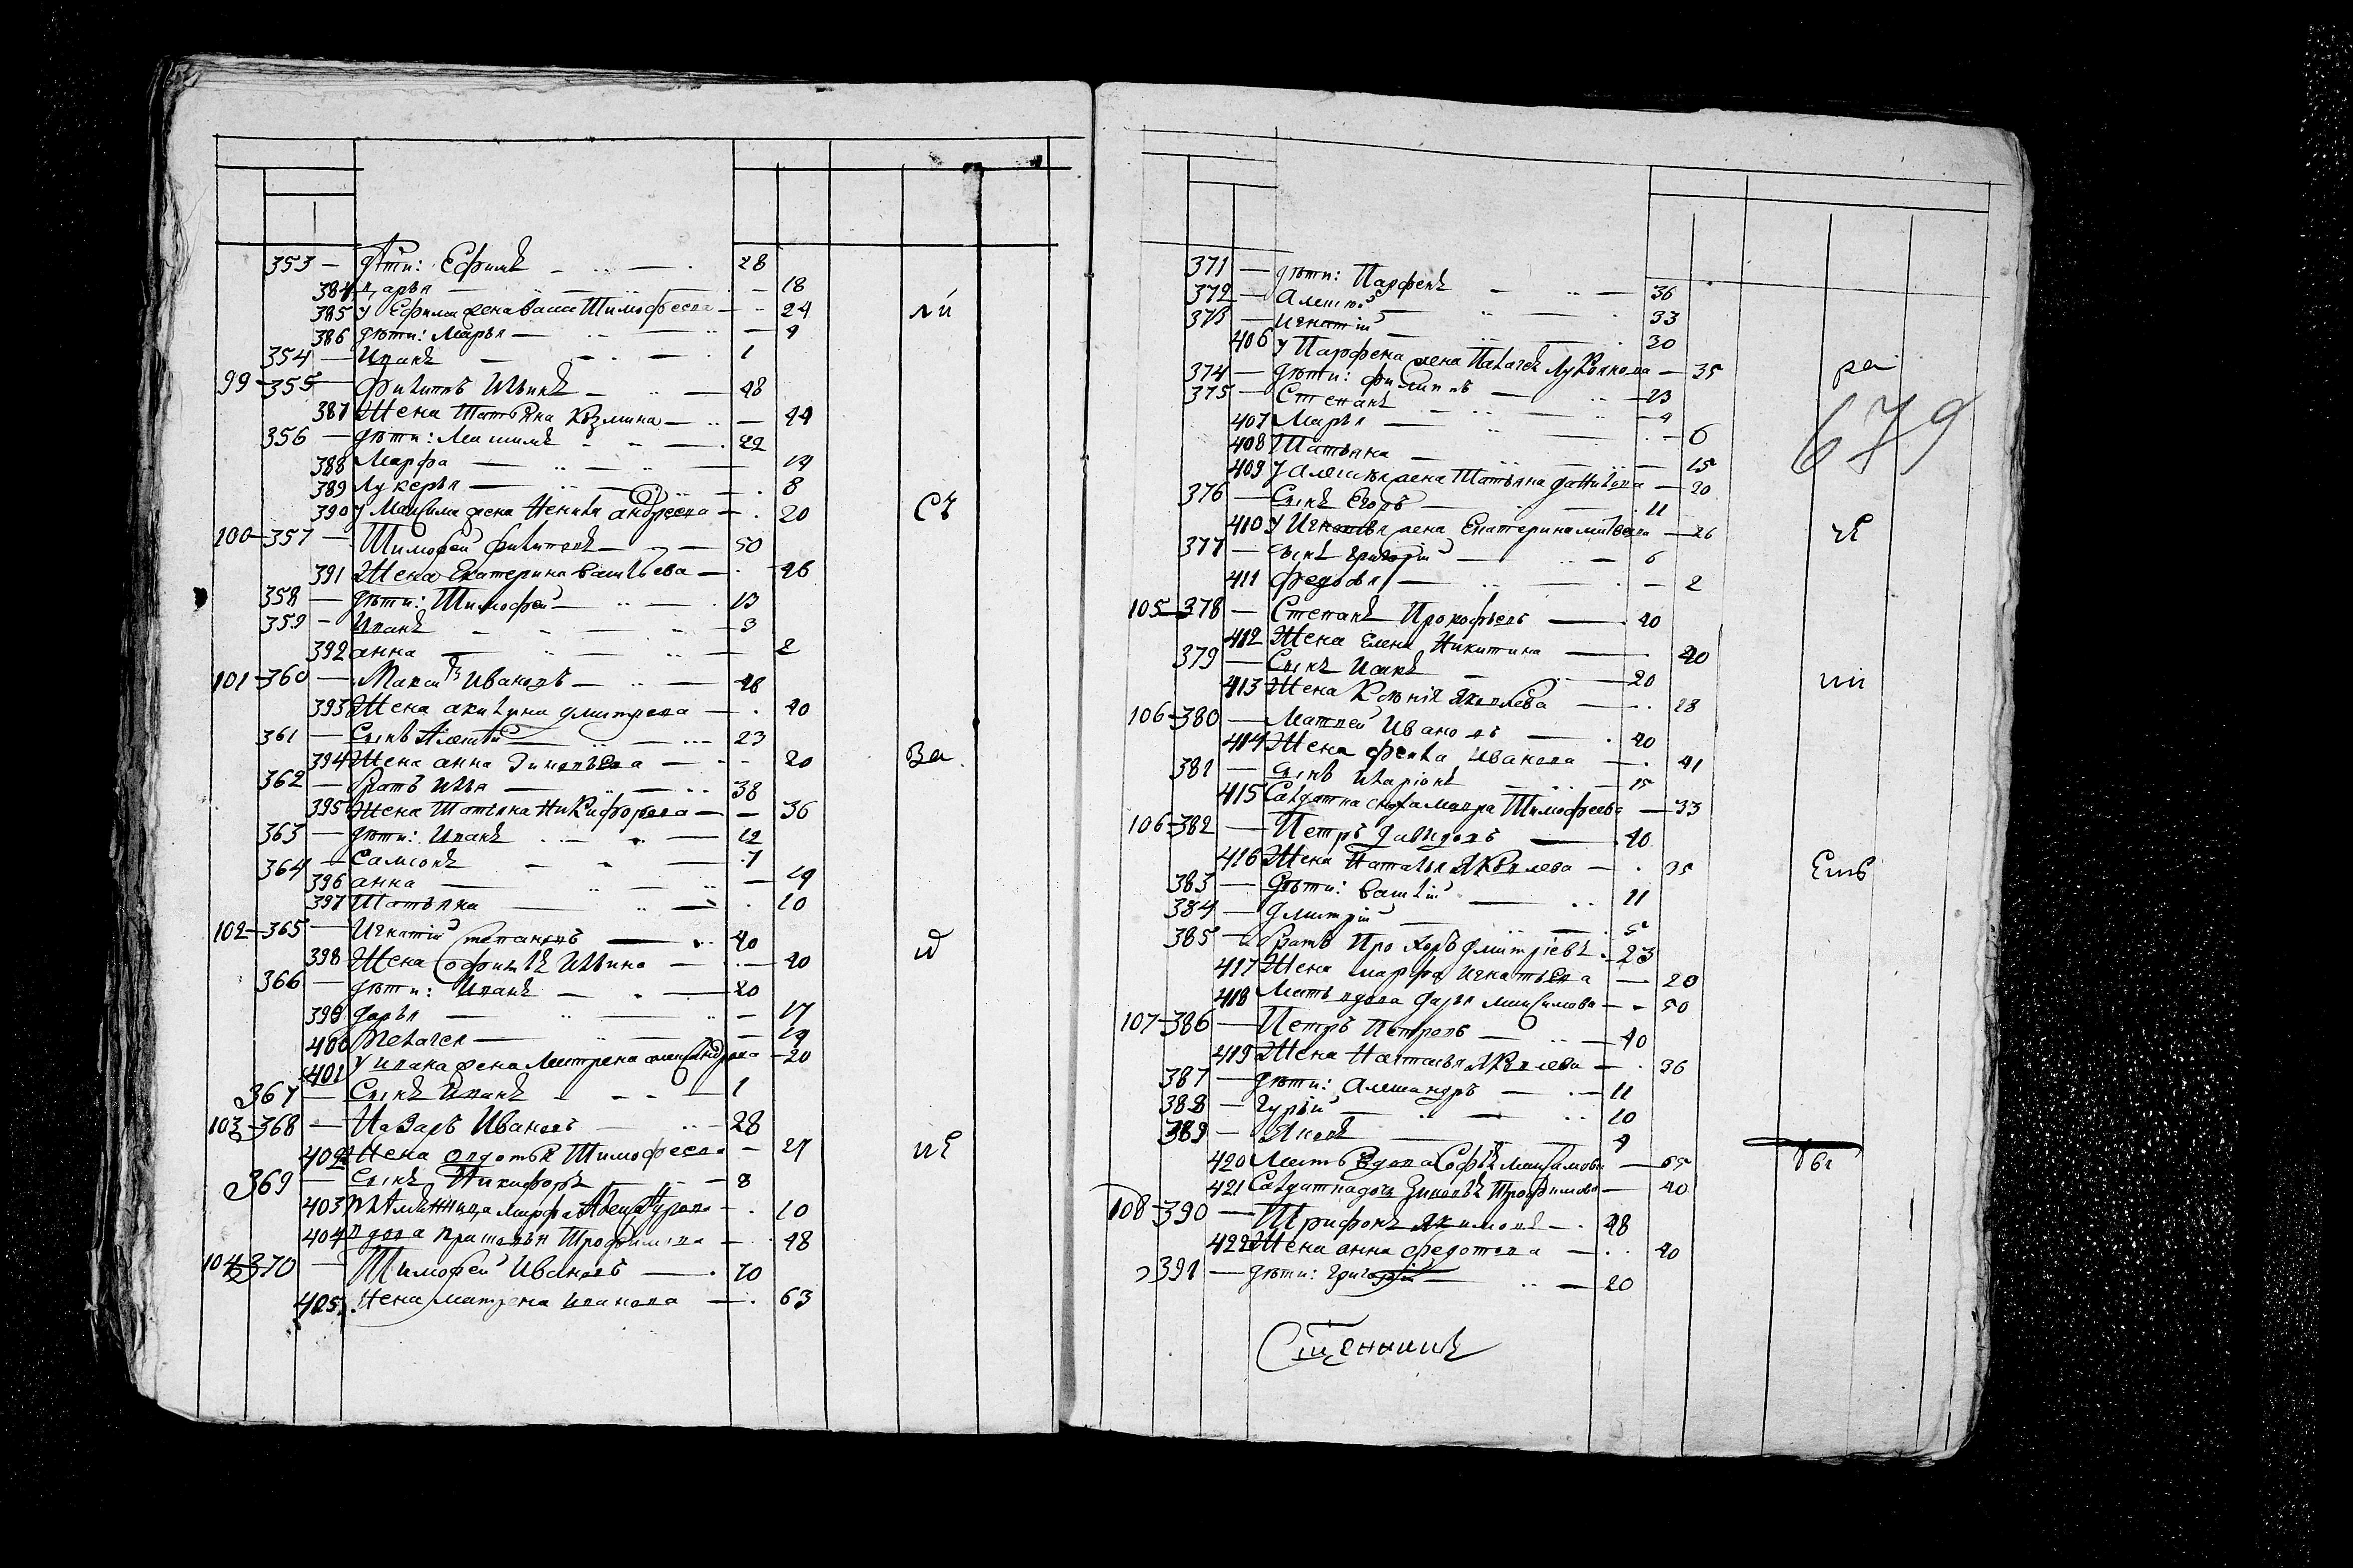 353 — дѣти: Ефимъ — 28
384 дарья — 18
385 у Ефима жена васса Тимофеева — 24
386 дѣти: Марья — 4
354 — Иванъ — 1
99 — 355 — филипъ Ильинъ — 48
387 Жена Татьяна Козмина — 44
356 — дѣти: Максимъ — 22
388 Марфа — 14
389 Лукерья — 8
390 у Максима жена Ненила андреева — 20
100 — 357 — Тимофей филиповъ — 50
391 Жена Екатерина васильева — 46
358 — дѣти: Тимофей — 13
359 — Иванъ — 3
392 анна — 2
101 — 360 — Максимъ Ивановъ — 48
393 Жена акилина дмитрева — 40
361 — Сынъ Алексѣй — 23
394 Жена анна Зиновьева — 20
362 — Братъ Илья — 38
395 Жена Татьяна Никифорова — 36
363 — дѣти: Иванъ — 12
364 — Самсонъ — 7
396 анна — 14
397 Татьяна — 10
102 — 365 — Игнатій Степановъ — 40
398 Жена Софья Ильина — 40
366 — дѣти: Иванъ — 20
399 дарья — 17
400 Пелагея — 14
401 у ивана жена Матрена александрова — 20
367 — Сынъ Иванъ — 1
103 — 368 — Назаръ Ивановъ — 28
402 Жена авдотья Тимофеева — 27
369 — Сынъ Никифоръ — 8
403 племянница марфа 10
404 вдова Прасковья Трофимова — 48
104 — 370 — Тимофей Ивановъ — 70
405 Жена матрена иванова — 63
371 — дѣти: Парфенъ — 36
372 — Алексѣй — 33
373 — Игнатій — 30
406 у Парфена жена Пелагея Лукоянова — 35
374 — дѣти: филиппъ — 13
375 — Степанъ — 4
407 Марья — 6
408 Татьяна — 15
409 у Алексѣя жена Татьяна данилова — 30
376 — Сынъ Егоръ — 11
410 у Игнатья жена Екатерина 26
377 — Сынъ григорій — 6
411 федосья — 2
105 — 378 — Степанъ Прокофьевъ — 40
412 Жена Елена Никитина — 40
379 — Сынъ Исакъ — 20
413 Жена Ксенія Яковлева — 28
106 — 380 — Матвей Ивановъ — 40
414 Жена фекла Иванова — 41
381 — Сынъ Иларіонъ — 15
415 Салдатка сноха мавра Тимофеева — 33
106 — 382 — Петръ давидовъ — 40
416 Жена Наталья Яковлева — 35
383 — дѣти: василій — 11
384 — дмитрій — 5
385 — Братъ Прохоръ дмитріевъ — 23
417 Жена марфа игнатьева — 20
418 Мать вдова дарья максимова — 50
107 — 386 — Петръ Петровъ — 40
419 Жена Наталья Яковлева — 36
387 — дѣти: александръ — 11
388 — гурій — 10
389 — Яковъ — 4
420 Мать вдова Софья максимова — 65
421 Салдатка 40
108 — 390 — Трифонъ Якимовъ — 48
422 Жена анна федотова — 40
391 — дѣти: григорій — 20
679